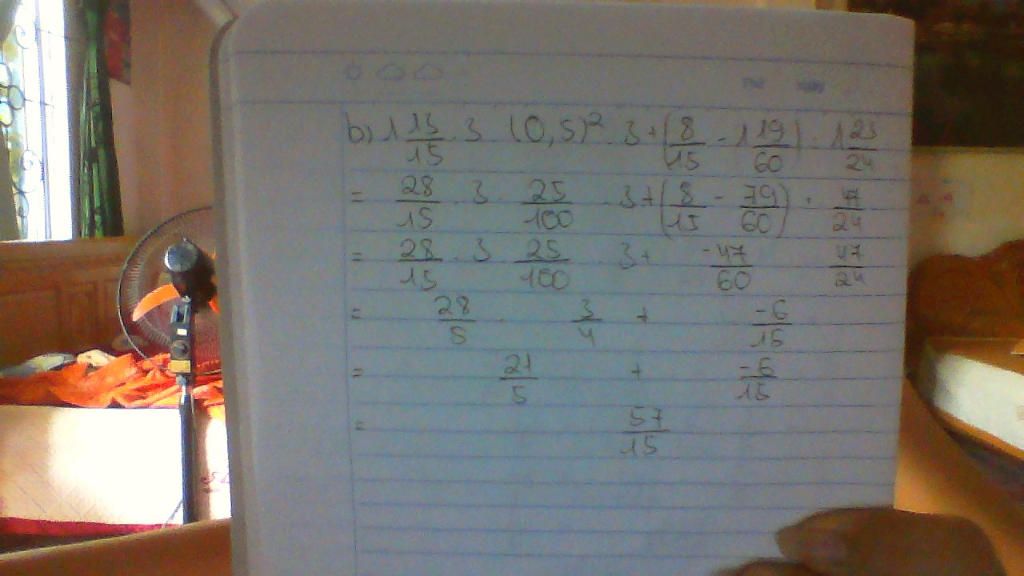 b) 1 13/15 . 3 . (0,5)² . 3 + (8/15 - 1 19/60) : 1 23/24
= 28/15 . 3 . 25/100 . 3 + (8/15 - 79/60) : 47/24
= 28/15 . 3 . 25/100 . 3 + -47/60 47/24
= 28/5 . 3/4 + -6/15
= 21/5 + -6/15
= 57/15